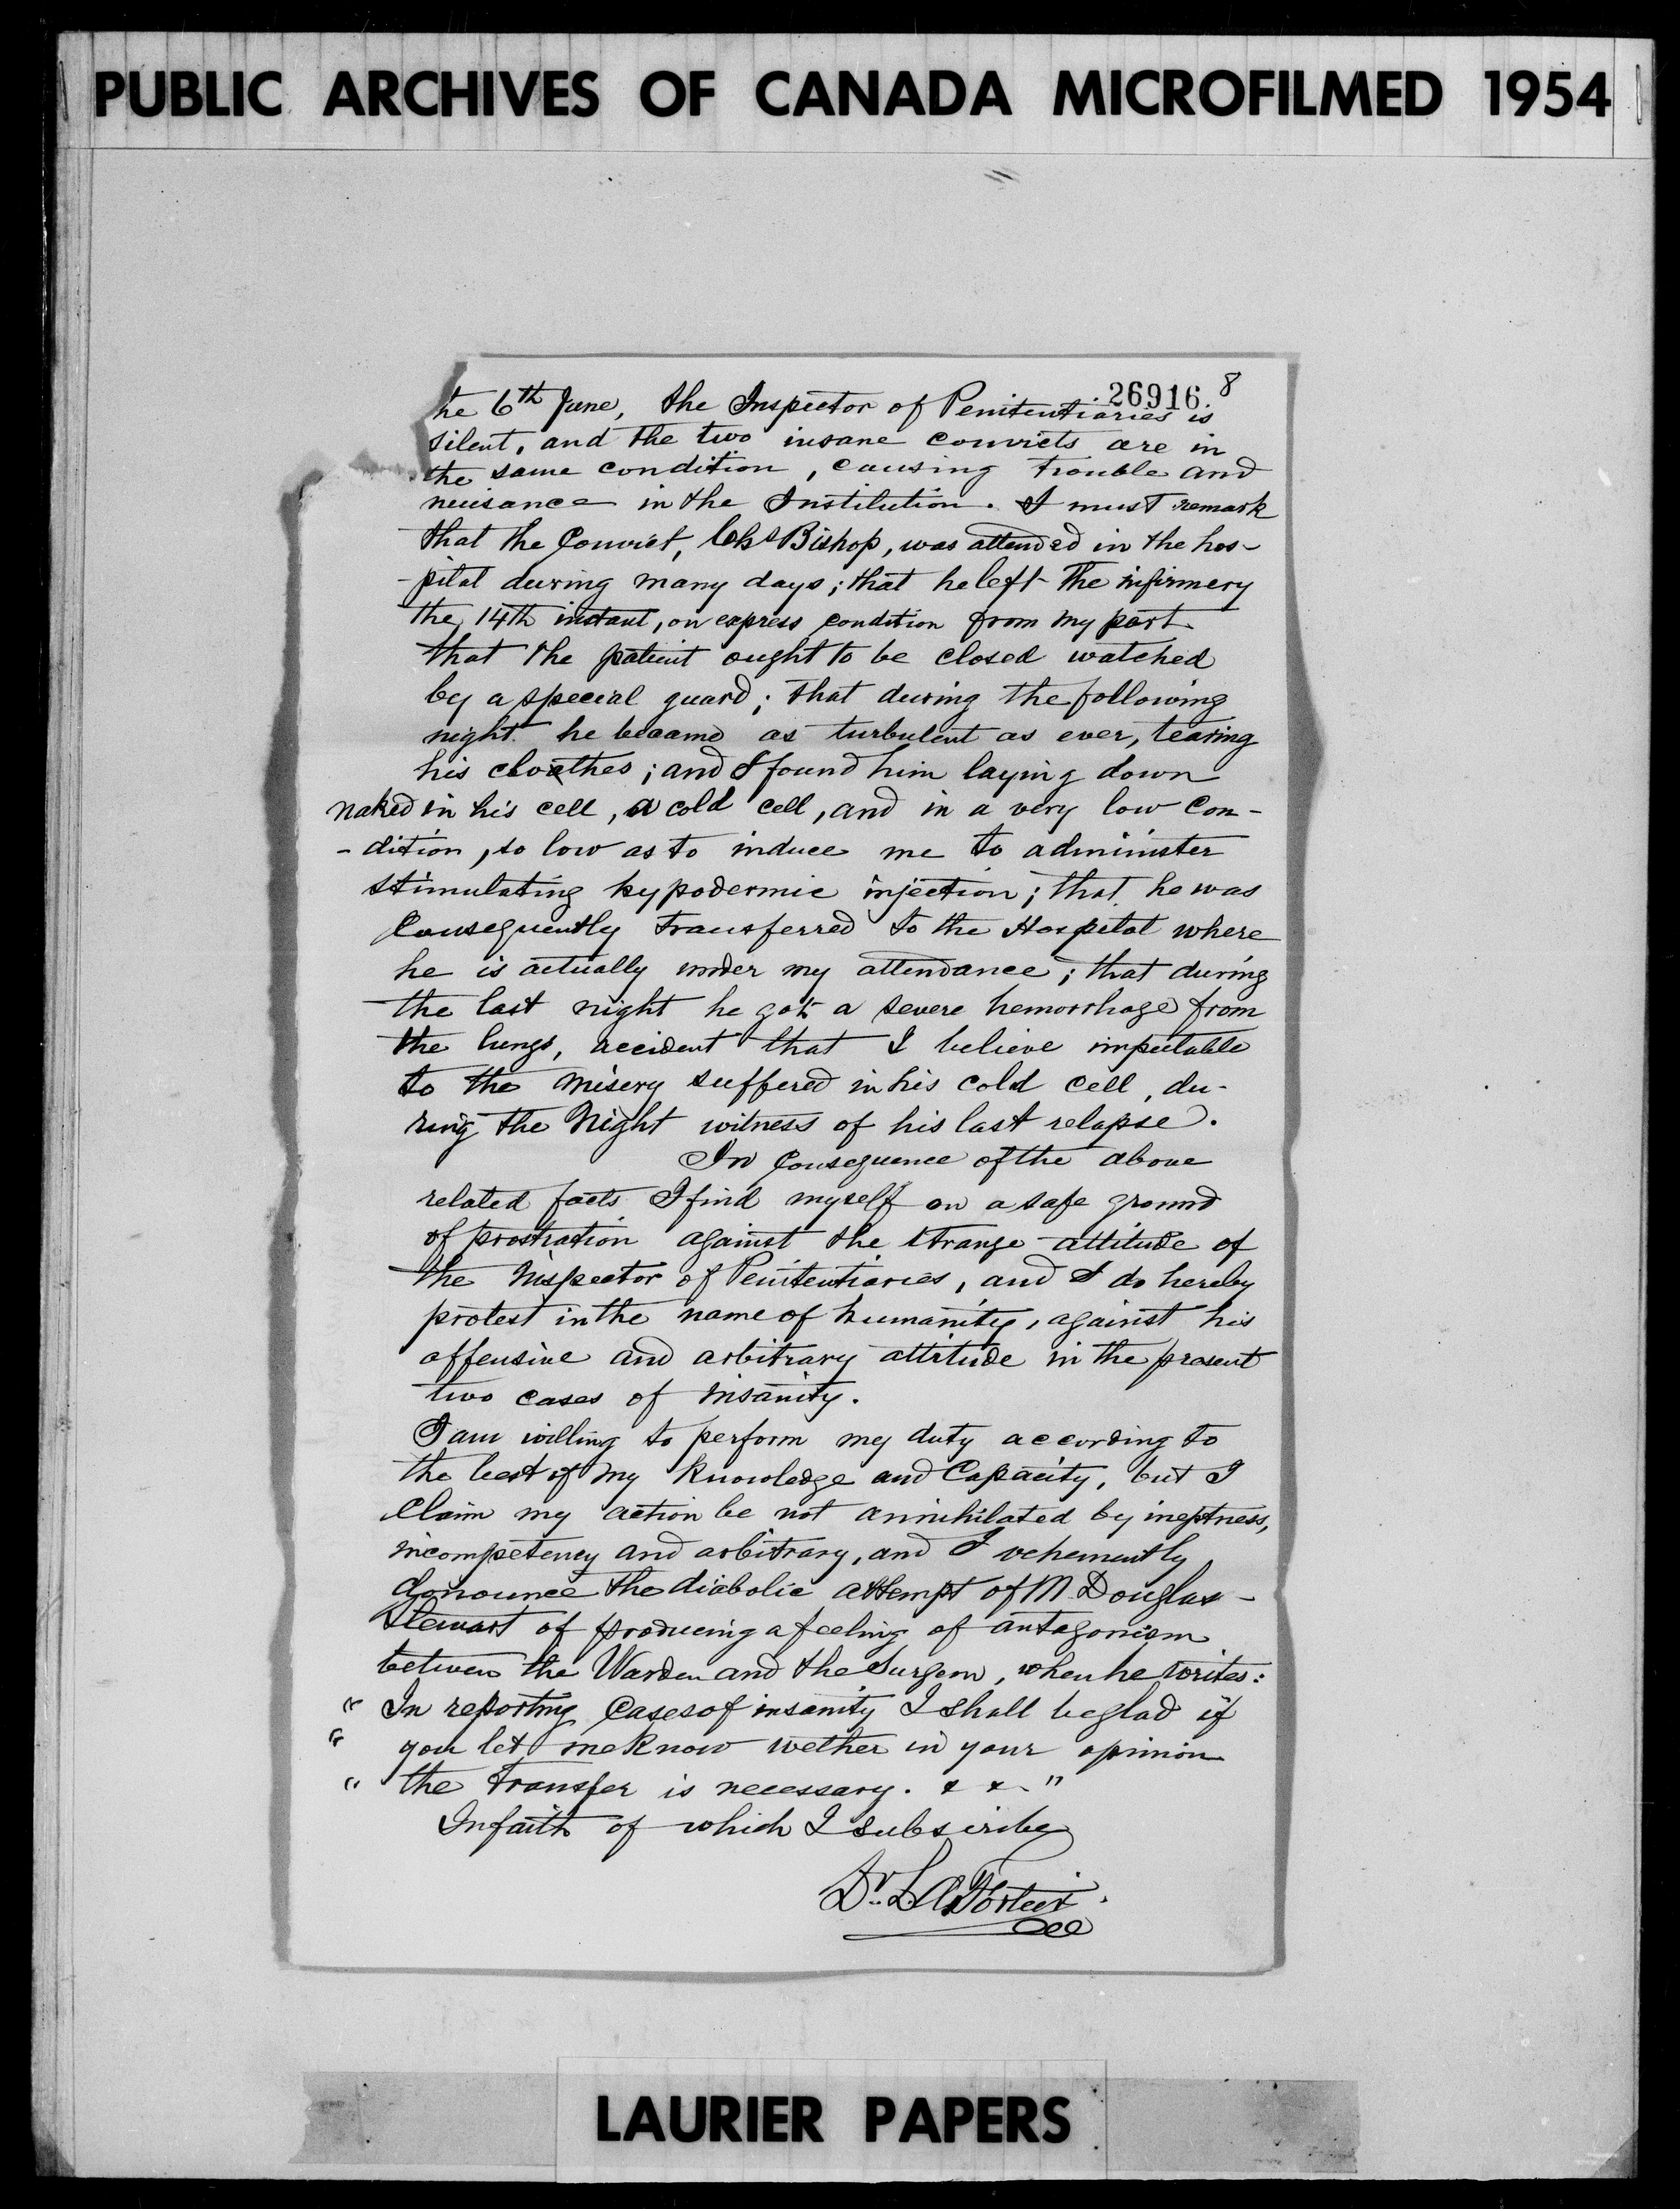 PUBLIC ARCHIVES OF CANADA MICROFILMED 1954
26916 8
he 6th June, the Inspector of Penitentiaries is
silent, and the two insane convicts are in
the same condition, causing trouble and
nuisance in the Institution. I must remark
that the Convict, Chs Bishop, was attended in the hos-
-pital during many days; that he left the infirmery
the 14th instant, on express condition from my part
that the patient ought to be closed watched
by a special guard; that during the following
night he became as turbulent as ever, tearing
his cloathes; and I found him laying down
naked in his cell, a cold cell, and in a very low Con-
-dition, so low as to induce me to administer
stimulating hypodermic injection; that he was
Consequently transferred to the Hospital where
he is actually under my attendance; that during
the last night he got a severe hemorrhage from
the lungs, accident that I believe imputable
to the misery suffered in his cold cell, du-
ring the Night witness of his last relapse.
In Consequence of the above
related facts I find myself on a safe ground
of prostration against the strange attitude of
the Inspector of Penitentiaries, and I do hereby
protest in the name of humanity, against his
offensive and arbitrary attitude in the present
two cases of insanity.
I am willing to perform my duty according to
the best of my knowledge and Capacity, but I
Claim my action be not annihilated by ineptness,
incompetency and arbitrary, and I vehemently
denounce the diabolic attempt of M Douglas-
Stewart of producing a feeling of antagonism
between the Warden and the Surgeon, when he writes:
" In reporting Cases of insanity I shall be glad if
" you let me know wether in your opinion
" the transfer is necessary. & & "
In faith of which I subscribe
Dr. L. A. Fortier
LAURIER PAPERS